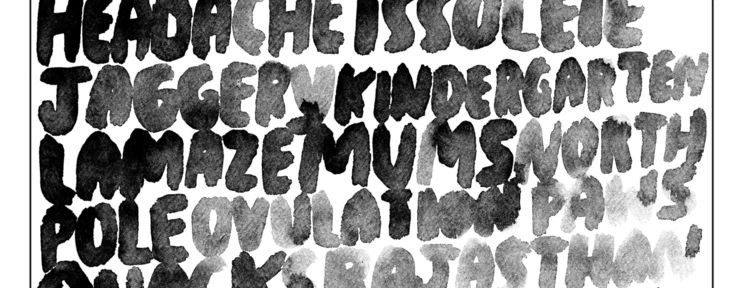 HEADACHE
JAGGERY KINDERGARTEN
LAMAZE MUMS NORTH
POLE OVULATION
QUACKS RAJASTHAN,